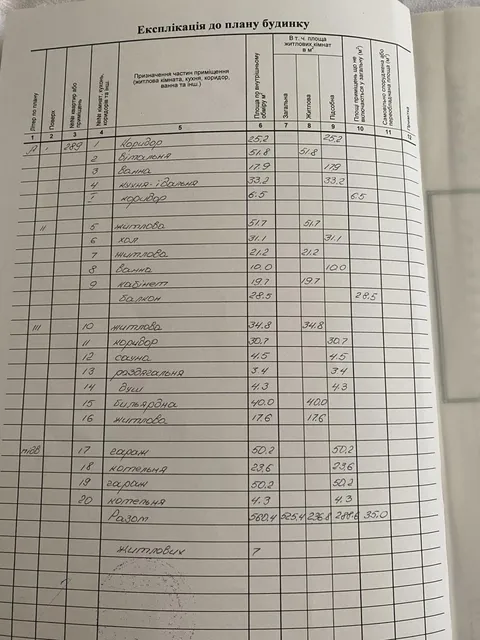 Експлікація до плану будинку
Літер по плану | Поверх | №№ квартир або приміщень | №№ кімнат, кухонь, коридорів та інш. | Призначення частин приміщення (житлова кімната, кухня, коридор, ванна та інш.) | Площа по внутрішньому обміру м² | В т. ч. площа житлових кімнат в м² | Загальна | Житлова | Підсобна | Площі приміщень що не включаються у загальну (м²) | Самовільно споруджена або переобладнана площа (м²)
1 2 3 4 5 6 7 8 9 10 11 12
А I 289 1 коридор 25.2 25.2
2 вітальня 51.8 51.8
3 ванна 17.9 17.9
4 кухня-їдальня 33.2 33.2
I коридор 6.5 6.5
II 5 житлова 51.7 51.7
6 хол 31.1 31.1
7 житлова 21.2 21.2
8 ванна 10.0 10.0
9 кабінет 19.7 19.7
балкон 28.5 28.5
III 10 житлова 34.8 34.8
11 коридор 30.7 30.7
12 сауна 4.5 4.5
13 роздягальня 3.4 3.4
14 душ 4.3 4.3
15 більярдна 40.0 40.0
16 житлова 17.6 17.6
підв 17 гараж 50.2 50.2
18 котельня 23.6 23.6
19 гараж 50.2 50.2
20 котельня 4.3 4.3
Разом 560.4 525.4 236.8 288.6 35.0
житлових 7